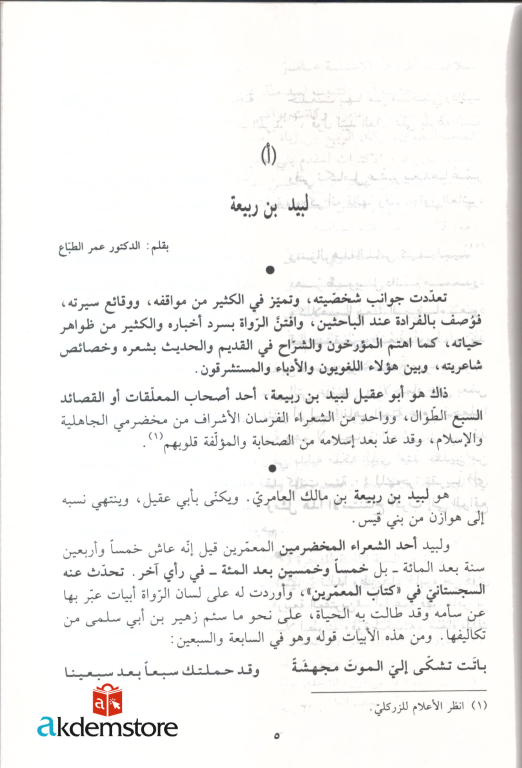 (أ)
لبيد بن ربيعة
بقلم: الدكتور عمر الطبّاع
تعدّدت جوانب شخصيّته، وتميّز في الكثير من مواقفه، ووقائع سيرته،
فوُصف بالفرادة عند الباحثين، وافتنّ الرّواة بسرد أخباره والكثير من ظواهر
حياته، كما اهتم المؤرخون والشرّاح في القديم والحديث بشعره وخصائص
شاعريته، وبين هؤلاء اللغويون والأدباء والمستشرقون.
ذاك هو أبو عقيل لبيد بن ربيعة، أحد أصحاب المعلّقات أو القصائد
السبع الطّوال، وواحد من الشعراء الفرسان الأشراف من مخضرمي الجاهلية
والإسلام، وقد عدّ بعد إسلامه من الصحابة والمؤلّفة قلوبهم(١).
هو لبيد بن ربيعة بن مالك العامريّ. ويكنّى بأبي عقيل، وينتهي نسبه
إلى هوازن من بني قيس.
ولبيد أحد الشعراء المخضرمين المعمّرين قيل إنّه عاش خمساً وأربعين
سنة بعد المائة ـ بل خمساً وخمسين بعد المئة ـ في رأي آخر. تحدّث عنه
السجستانيّ في «كتاب المعمرين»، وأوردت له على لسان الرّواة أبيات عبّر بها
عن سأمه وقد طالت به الحياة، على نحو ما سئم زهير بن أبي سلمى من
تكاليفها. ومن هذه الأبيات قوله وهو في السابعة والسبعين:
باتت تشكّى إليّ الموتَ مجهشةً وقد حملتك سبعاً بعد سبعينا
(١) انظر الأعلام للزركليّ.
٥
akdemstore